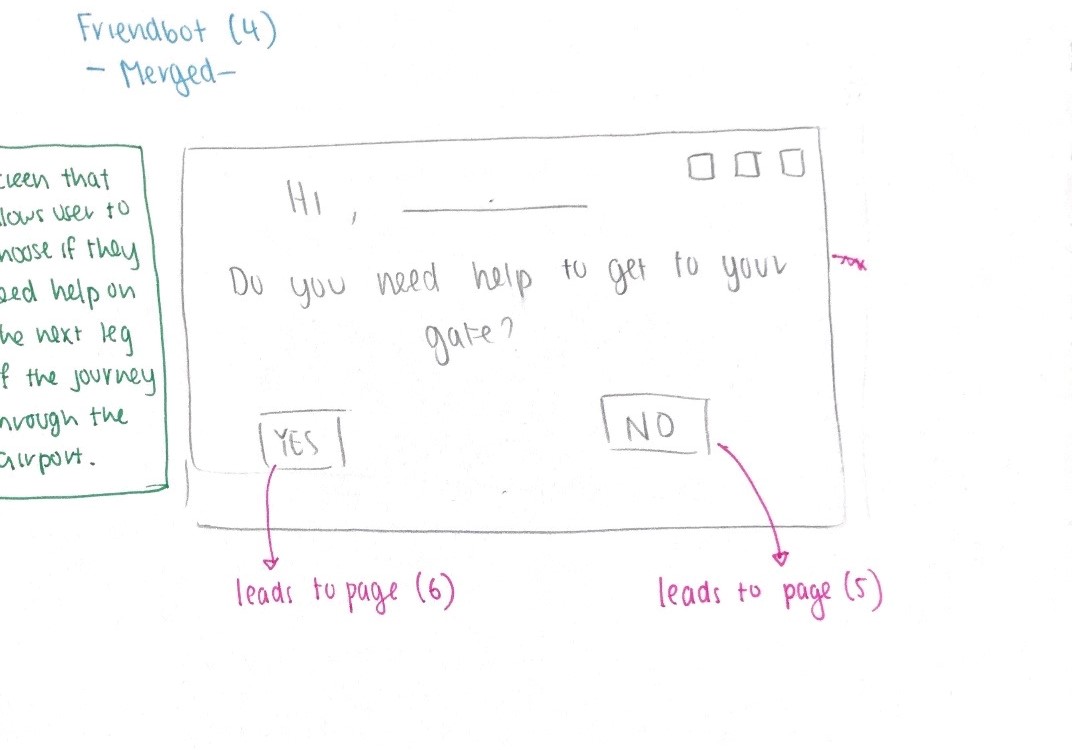 Friendbot (4)
- Merged-
creen that
lows user to
hoose if they
eed help on
he next leg
f the journey
hrough the
airport.
Hi, ________
Do you need help to get to your
gate?
YES
NO
leads to page (6)
leads to page (5)